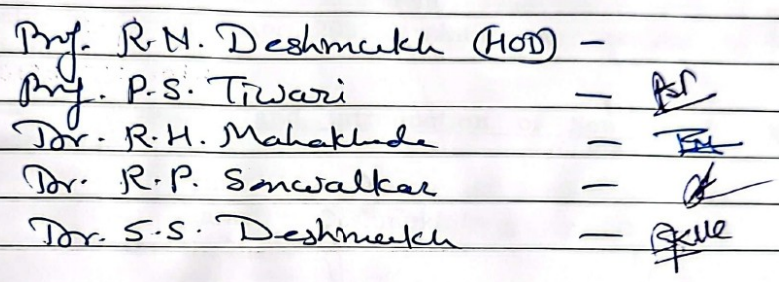 Prof. R.N. Deshmukh (HOD) -
Prof. P.S. Tiwari -
Dr. R.H. Mahakhede -
Dr. R.P. Sonwalkar -
Dr. S.S. Deshmukh -